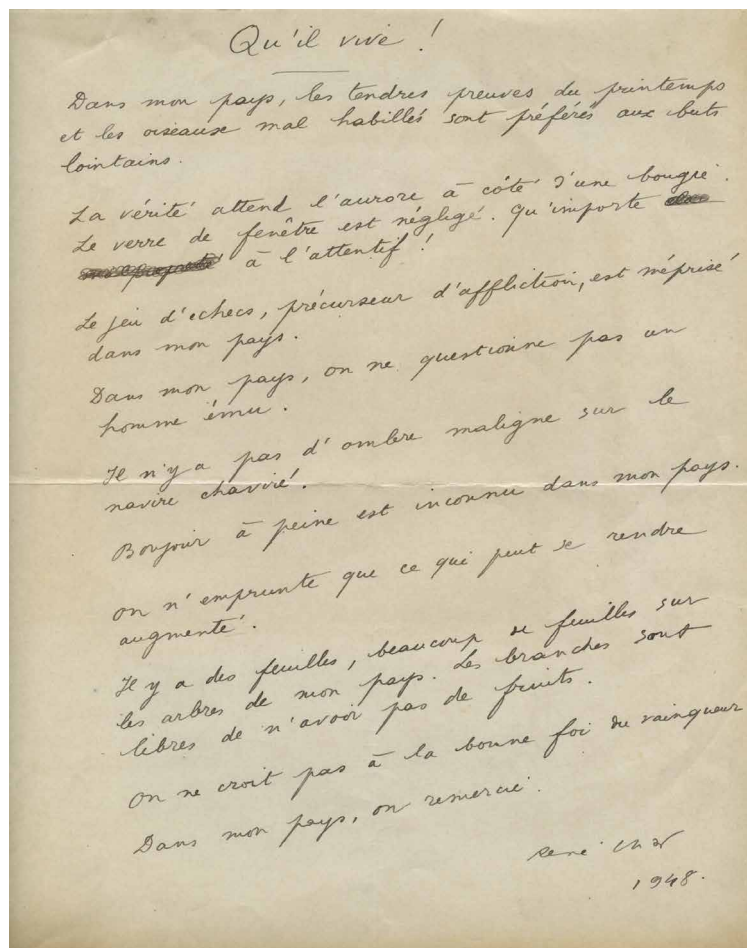 Qu'il vive !
Dans mon pays, les tendres preuves du printemps
et les oiseaux mal habillés sont préférés aux buts
lointains.
La vérité attend l'aurore à côté d'une bougie.
Le verre de fenêtre est négligé. Qu'importe
à l'attentif !
Le jeu d'echecs, précurseur d'affliction, est méprisé
dans mon pays.
Dans mon pays, on ne questionne pas un
homme ému.
Il n'y a pas d'ombre maligne sur le
navire chaviré.
Bonjour à peine est inconnu dans mon pays.
On n'emprunte que ce qui peut se rendre
augmenté.
Il y a des feuilles, beaucoup de feuilles sur
les arbres de mon pays. Les branches sont
libres de n'avoir pas de fruits.
On ne croit pas à la bonne foi du vainqueur
Dans mon pays, on remercie.
René Char
1948.